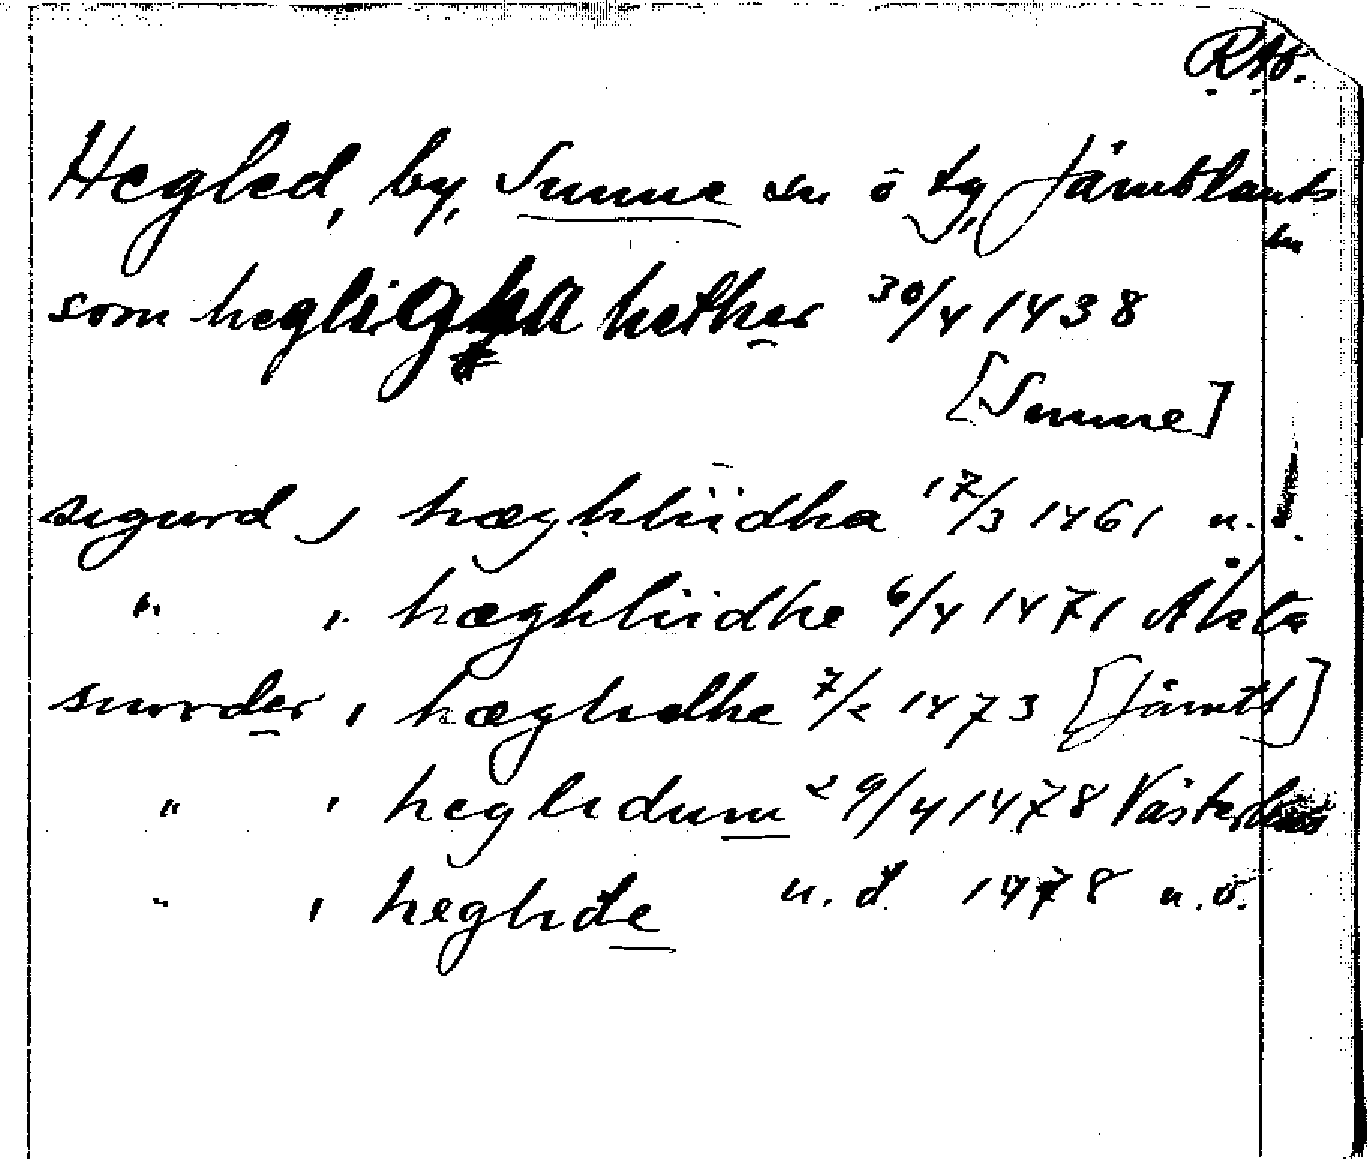 RAÖ.
Hegled, by, Sunne sn ö tg, Jämtlands
ln
som hegligha hether 30/4 1438
[Sunne]
sigurd j hæghliidha 17/3 1461 u.
" i hæghliidhe 6/4 1471
siurder i hæglidhe 7/2 1473 [Jämtl]
" i heglidum 29/4 1478
" i heglide u. d. 1478 u.o.